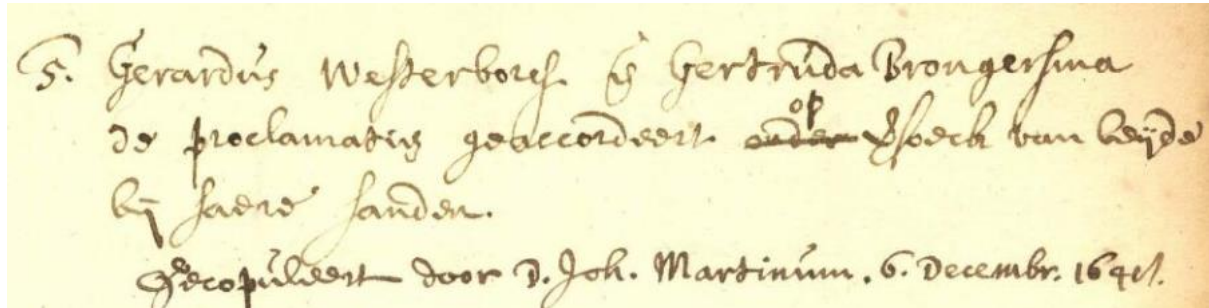 5. Gerardus Westerborch & Gertruda Brongersma
de proclamatie geaccordeert onder op versoeck van beijde
bij haere handen.
Gecopuleert door D. Joh. Martinum. 6. Decembr.